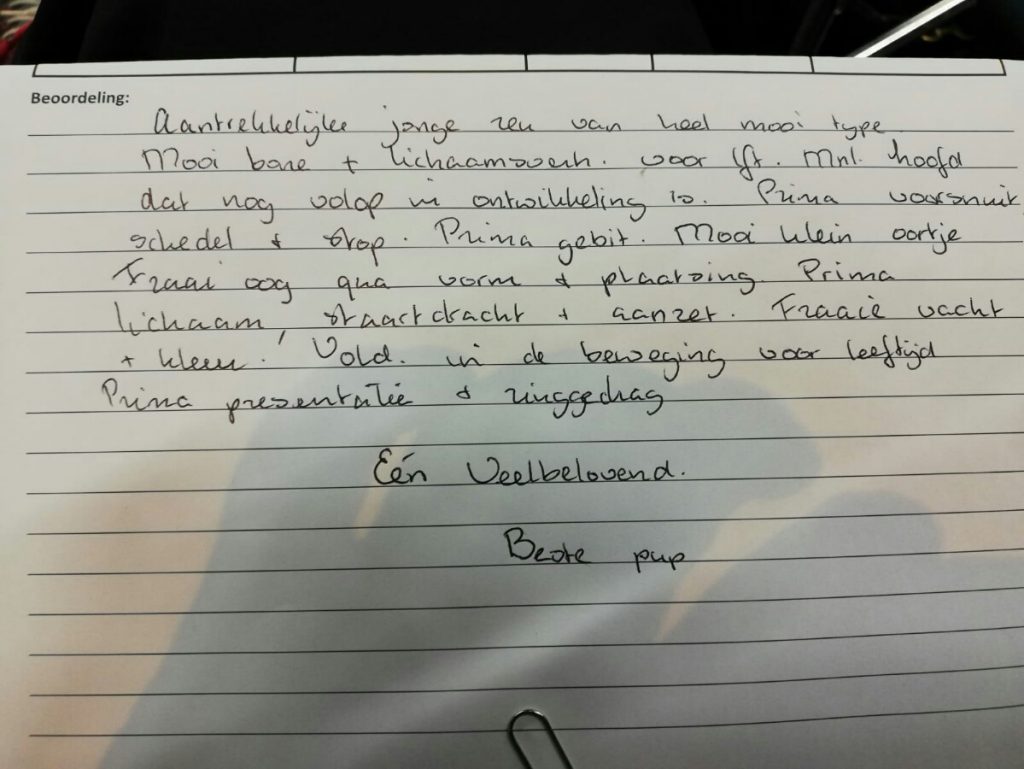 Beoordeling:
Aantrekkelijke jonge reu van heel mooi type
Mooi bone + lichaamswerk. voor lft. Mnl. hoofd
dat nog volop in ontwikkeling is. Prima voorsnuit
schedel & stop. Prima gebit. Mooi klein oortje
Fraai oog qua vorm & plaatsing. Prima
lichaam, staartdracht + aanzet. Fraaie vacht
+ kleur! Vold. in de beweging voor leeftijd
Prima presentatie & ringgedrag
Eén Veelbelovend.
Beste pup